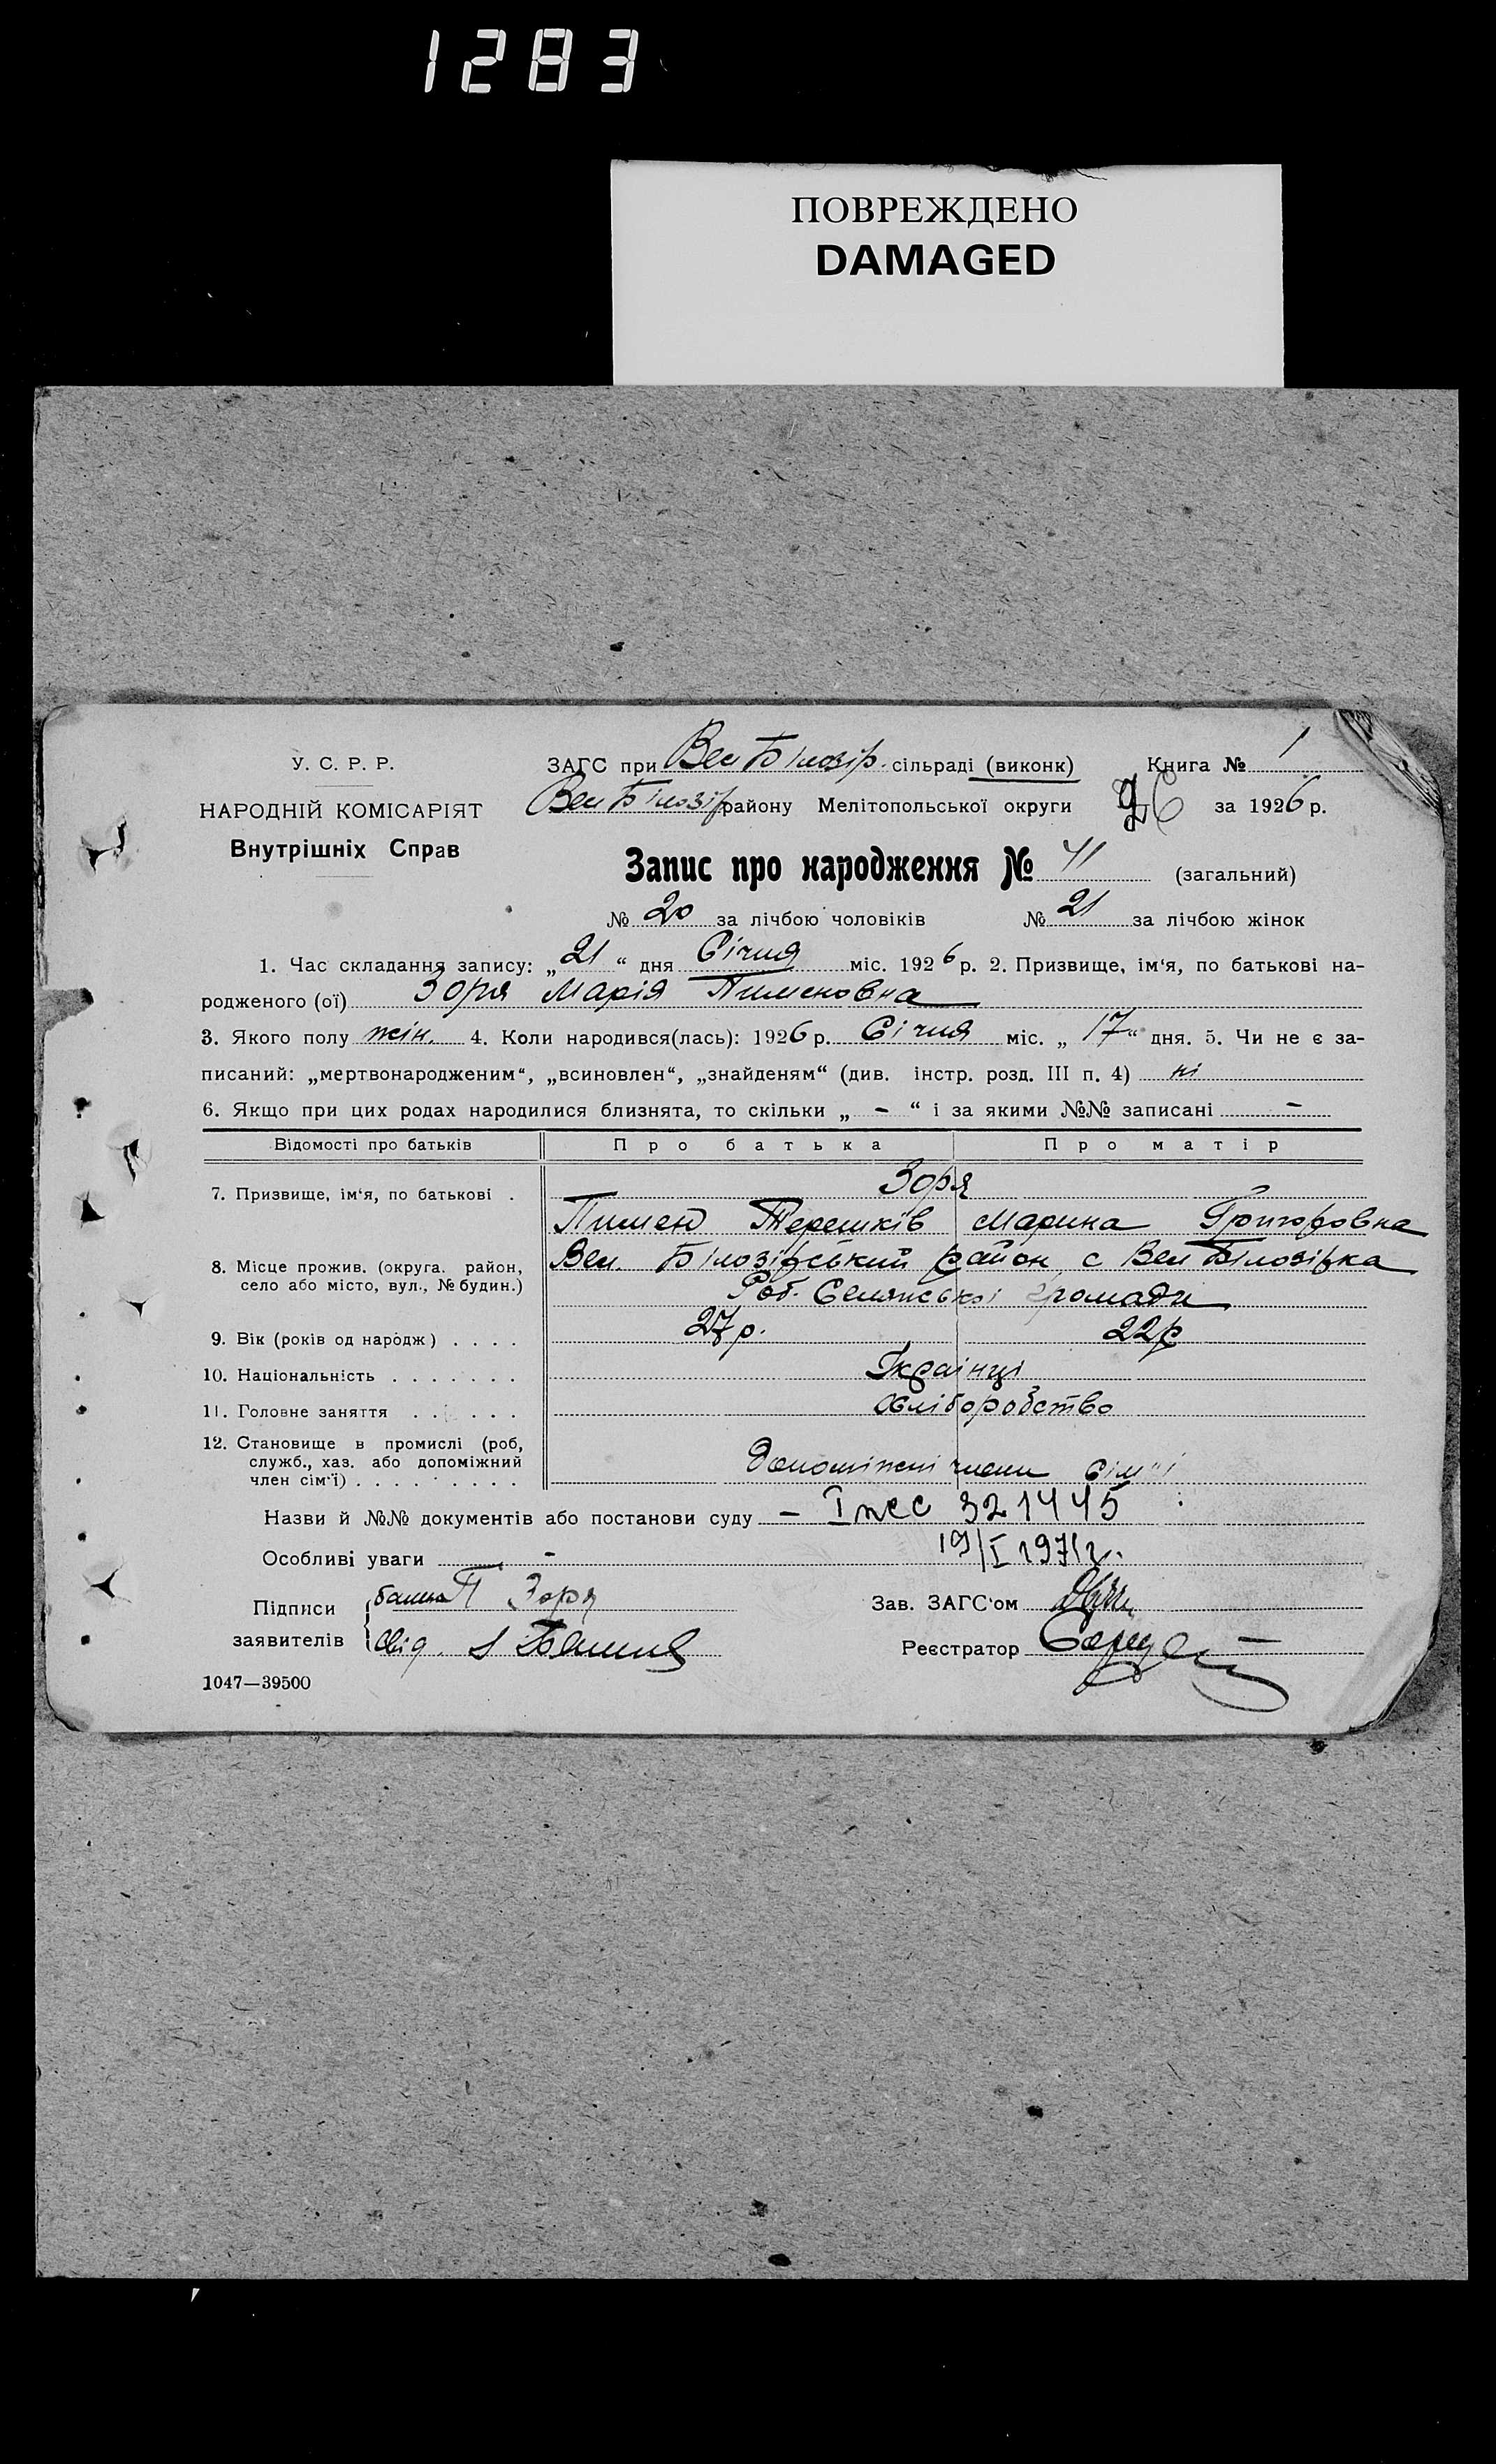 1283
ПОВРЕЖДЕНО
DAMAGED
У. С. Р. Р.
НАРОДНІЙ КОМІСАРІЯТ
Внутрішніх Справ
ЗАГС при Вел Білозір. сільраді (виконк) Книга № 1
Вел Білозір району Мелітопольської округи 26 за 1926 р.
Запис про народження № 41 (загальний)
№ 20 за лічбою чоловіків № 21 за лічбою жінок
1. Час складання запису: „21“ дня Січня міс. 1926 р. 2. Призвище, ім‘я, по батькові на-
родженого (ої) Зоря Марія Пименовна
3. Якого полу жін. 4. Коли народився(лась): 1926 р. Січня міс. „17“ дня. 5. Чи не є за-
писаний: „мертвонародженим“, „всиновлен“, „знайденям“ (див. інстр. розд. III п. 4) ні
6. Якщо при цих родах народилися близнята, то скільки „ - “ і за якими №№ записані -
Відомості про батьків Про батька Про матір
7. Призвище, ім‘я, по батькові . Зоря
Пимен Терешків Марина Григоровна
8. Місце прожив. (округа. район, село або місто, вул., № будин.) Вел. Білозірський район, с Вел Білозірка
Роб. Селянської громади
9. Вік (років од народж) . . . . 27 р. 22 р
10. Національність . . . . . . . Українці
11. Головне заняття . . . . . . Хліборобство
12. Становище в промислі (роб, служб., хаз. або допоміжний член сім‘ї) . . . . . . . . . Допоміжні члени сім'ї
Назви й №№ документів або постанови суду – I жс 321445
19/I 1971г.
Особливі уваги -
Підписи заявителів
батько П Зоря
Свід.
Зав. ЗАГС‘ом
Реєстратор
1047—39500